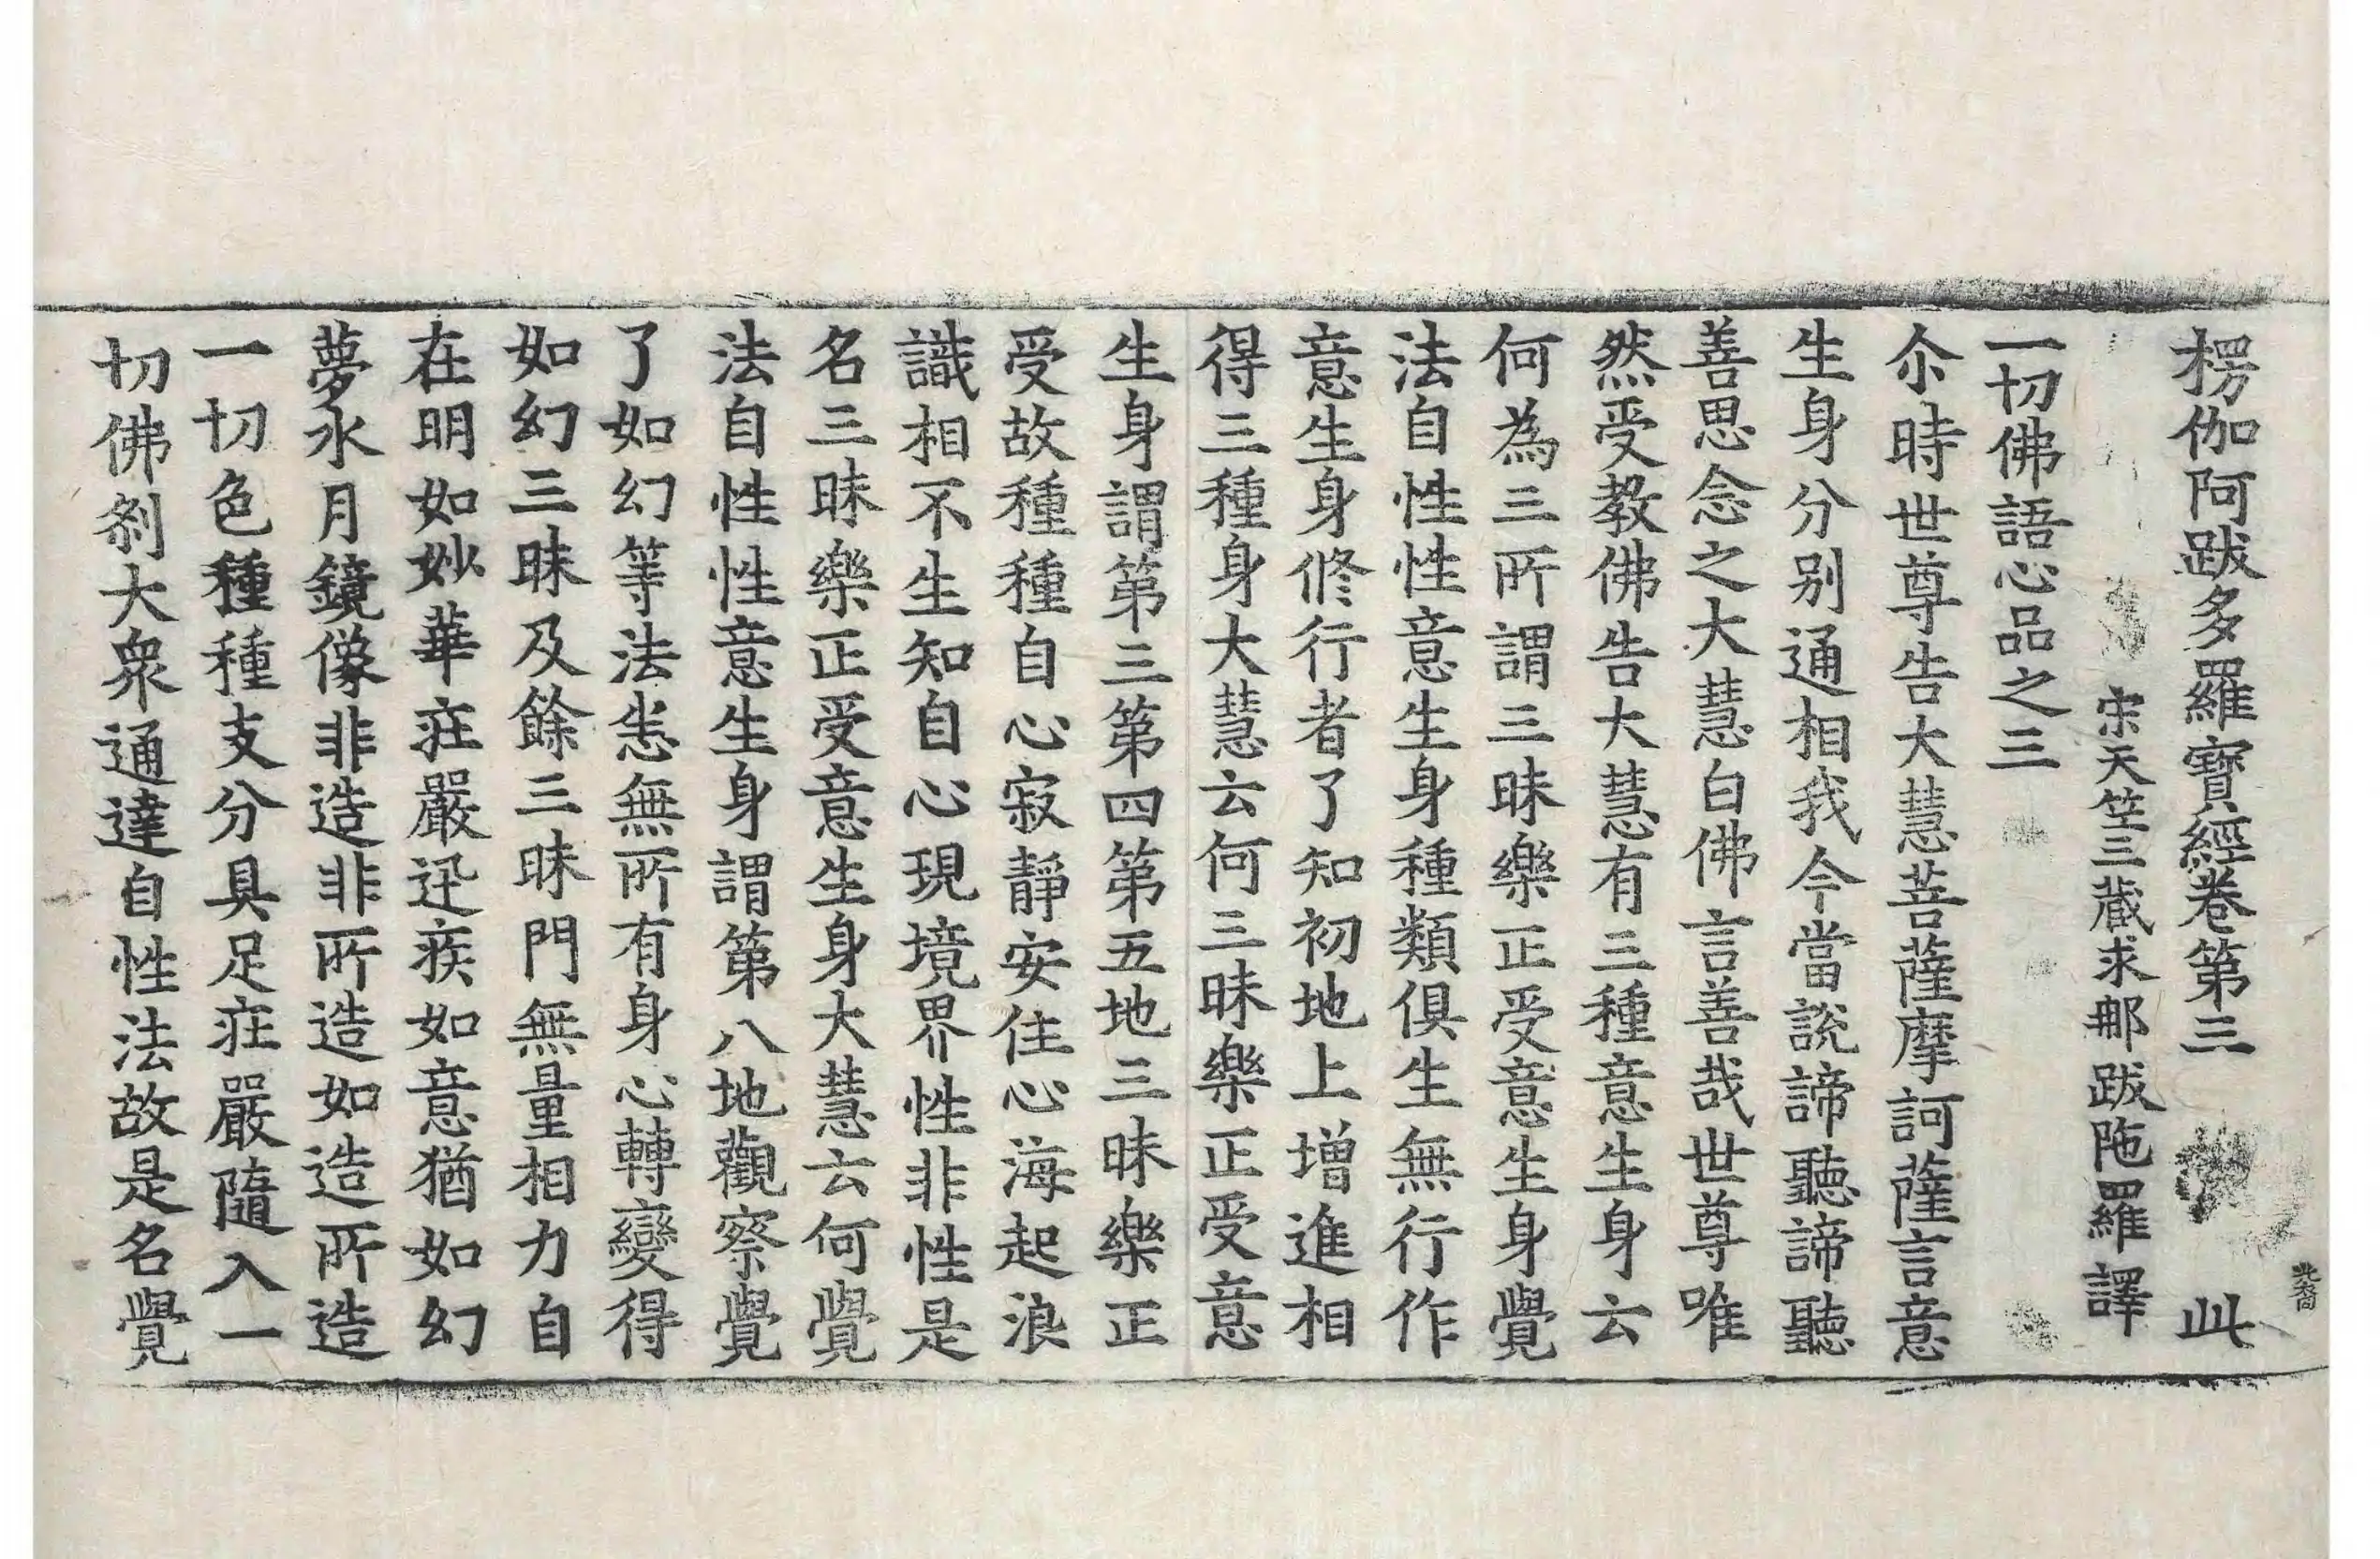 楞伽阿跋多羅寶經卷第三 此
宋天竺三藏求那跋陁羅譯
一切佛語心品之三
尒時世尊告大慧菩薩摩訶薩言意
生身分别通相我今當說諦聽諦聽
善思念之大慧白佛言善哉世尊唯
然受教佛告大慧有三種意生身云
何為三所謂三昧樂正受意生身覺
法自性性意生身種類俱生無行作
意生身修行者了知初地上增進相
得三種身大慧云何三昧樂正受意
生身謂第三第四第五地三昧樂正
受故種種自心寂靜安住心海起浪
識相不生知自心現境界性非性是
名三昧樂正受意生身大慧云何覺
法自性性意生身謂第八地觀察覺
了如幻等法悉無所有身心轉變得
如幻三昧及餘三昧門無量相力自
在明如妙華莊嚴迅疾如意猶如幻
夢水月鏡像非造非所造如造所造
一切色種種支分具足莊嚴隨入一
切佛剎大衆通達自性法故是名覺